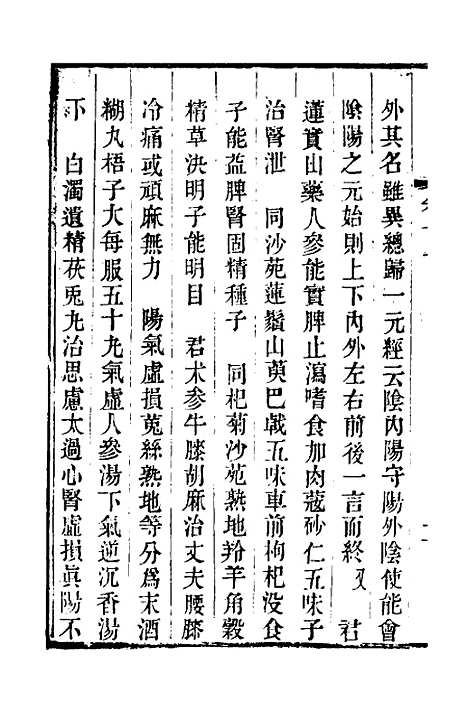 外其名雖異總歸一元經云陰內陽守陽外陰使能會
陰陽之元始則上下內外左右前後一言而終又　君
蓮實山藥人參能實脾止瀉嗜食加肉蔻砂仁五味子
治腎泄　同沙苑蓮鬚山萸巴戟五味車前枸杞没食
子能益脾腎固精種子　同杞菊沙苑熟地羚羊角穀
精草決明子能明目　君朮參牛膝胡麻治丈夫腰膝
冷痛或頑麻無力　陽氣虛損菟絲熟地等分爲末酒
糊丸梧子大每服五十丸氣虛人參湯下氣逆沉香湯
下　白濁遺精茯兎丸治思慮太過心腎虛損眞陽不